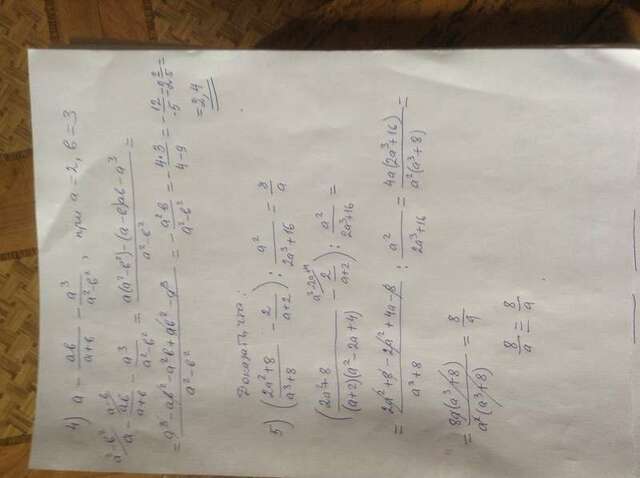 4) a - ab/(a+b) - a³/(a²-b²), при a=2, b=3
a - ab/(a+b) - a³/(a²-b²) = (a(a²-b²)-(a-b)ab-a³)/(a²-b²) =
= (a³-ab²-a²b+ab²-a³)/(a²-b²) = - a²b/(a²-b²) = - 4*3/(4-9) = - 12/-5 = 2 2/5 =
= 2,4
Доказать, что:
5) ((2a²+8)/(a³+8) - 2/(a+2)) : a²/(2a³+16) = 8/a
((2a²+8)/((a+2)(a²-2a+4)) - 2/(a+2)) : a²/(2a³+16) =
= (2a²+8-2a²+4a-8)/(a³+8) : a²/(2a³+16) = 4a(2a³+16)/(a²(a³+8)) =
= 8a(a³+8)/(a²(a³+8)) = 8/a
8/a ≡ 8/a